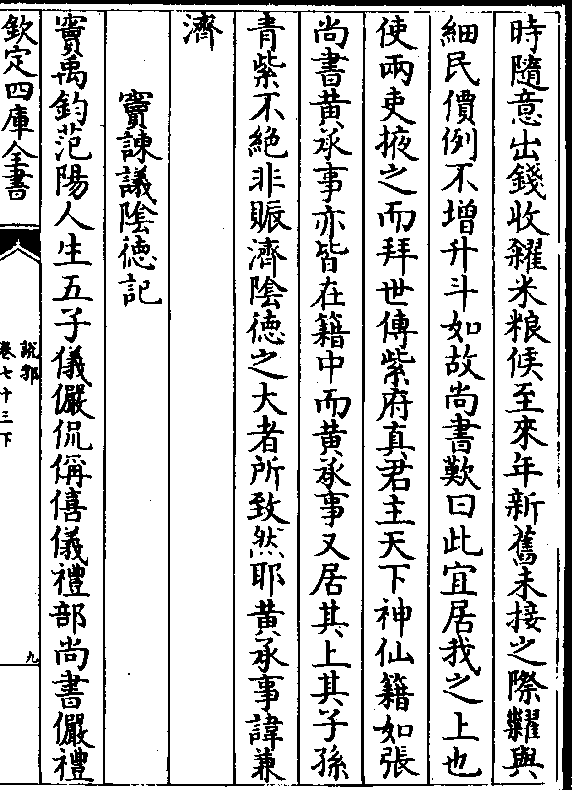 時隨意出錢收糴米粮候至來年新舊未接之際糶與
細民價例不增升斗如故尚書歎曰此宜居我之上也
使兩吏掖之而拜世傳紫府真君主天下神仙籍如張
尚書黄承事亦皆在籍中而黄承事又居其上其子孫
青紫不絶非賑濟隂徳之大者所致然耶黄承事諱兼
濟
竇諫議隂徳記
竇禹鈞范陽人生五子儀儼侃偁僖儀禮部尚書儼禮
欽定四庫全書
説郛
卷七十三下
九